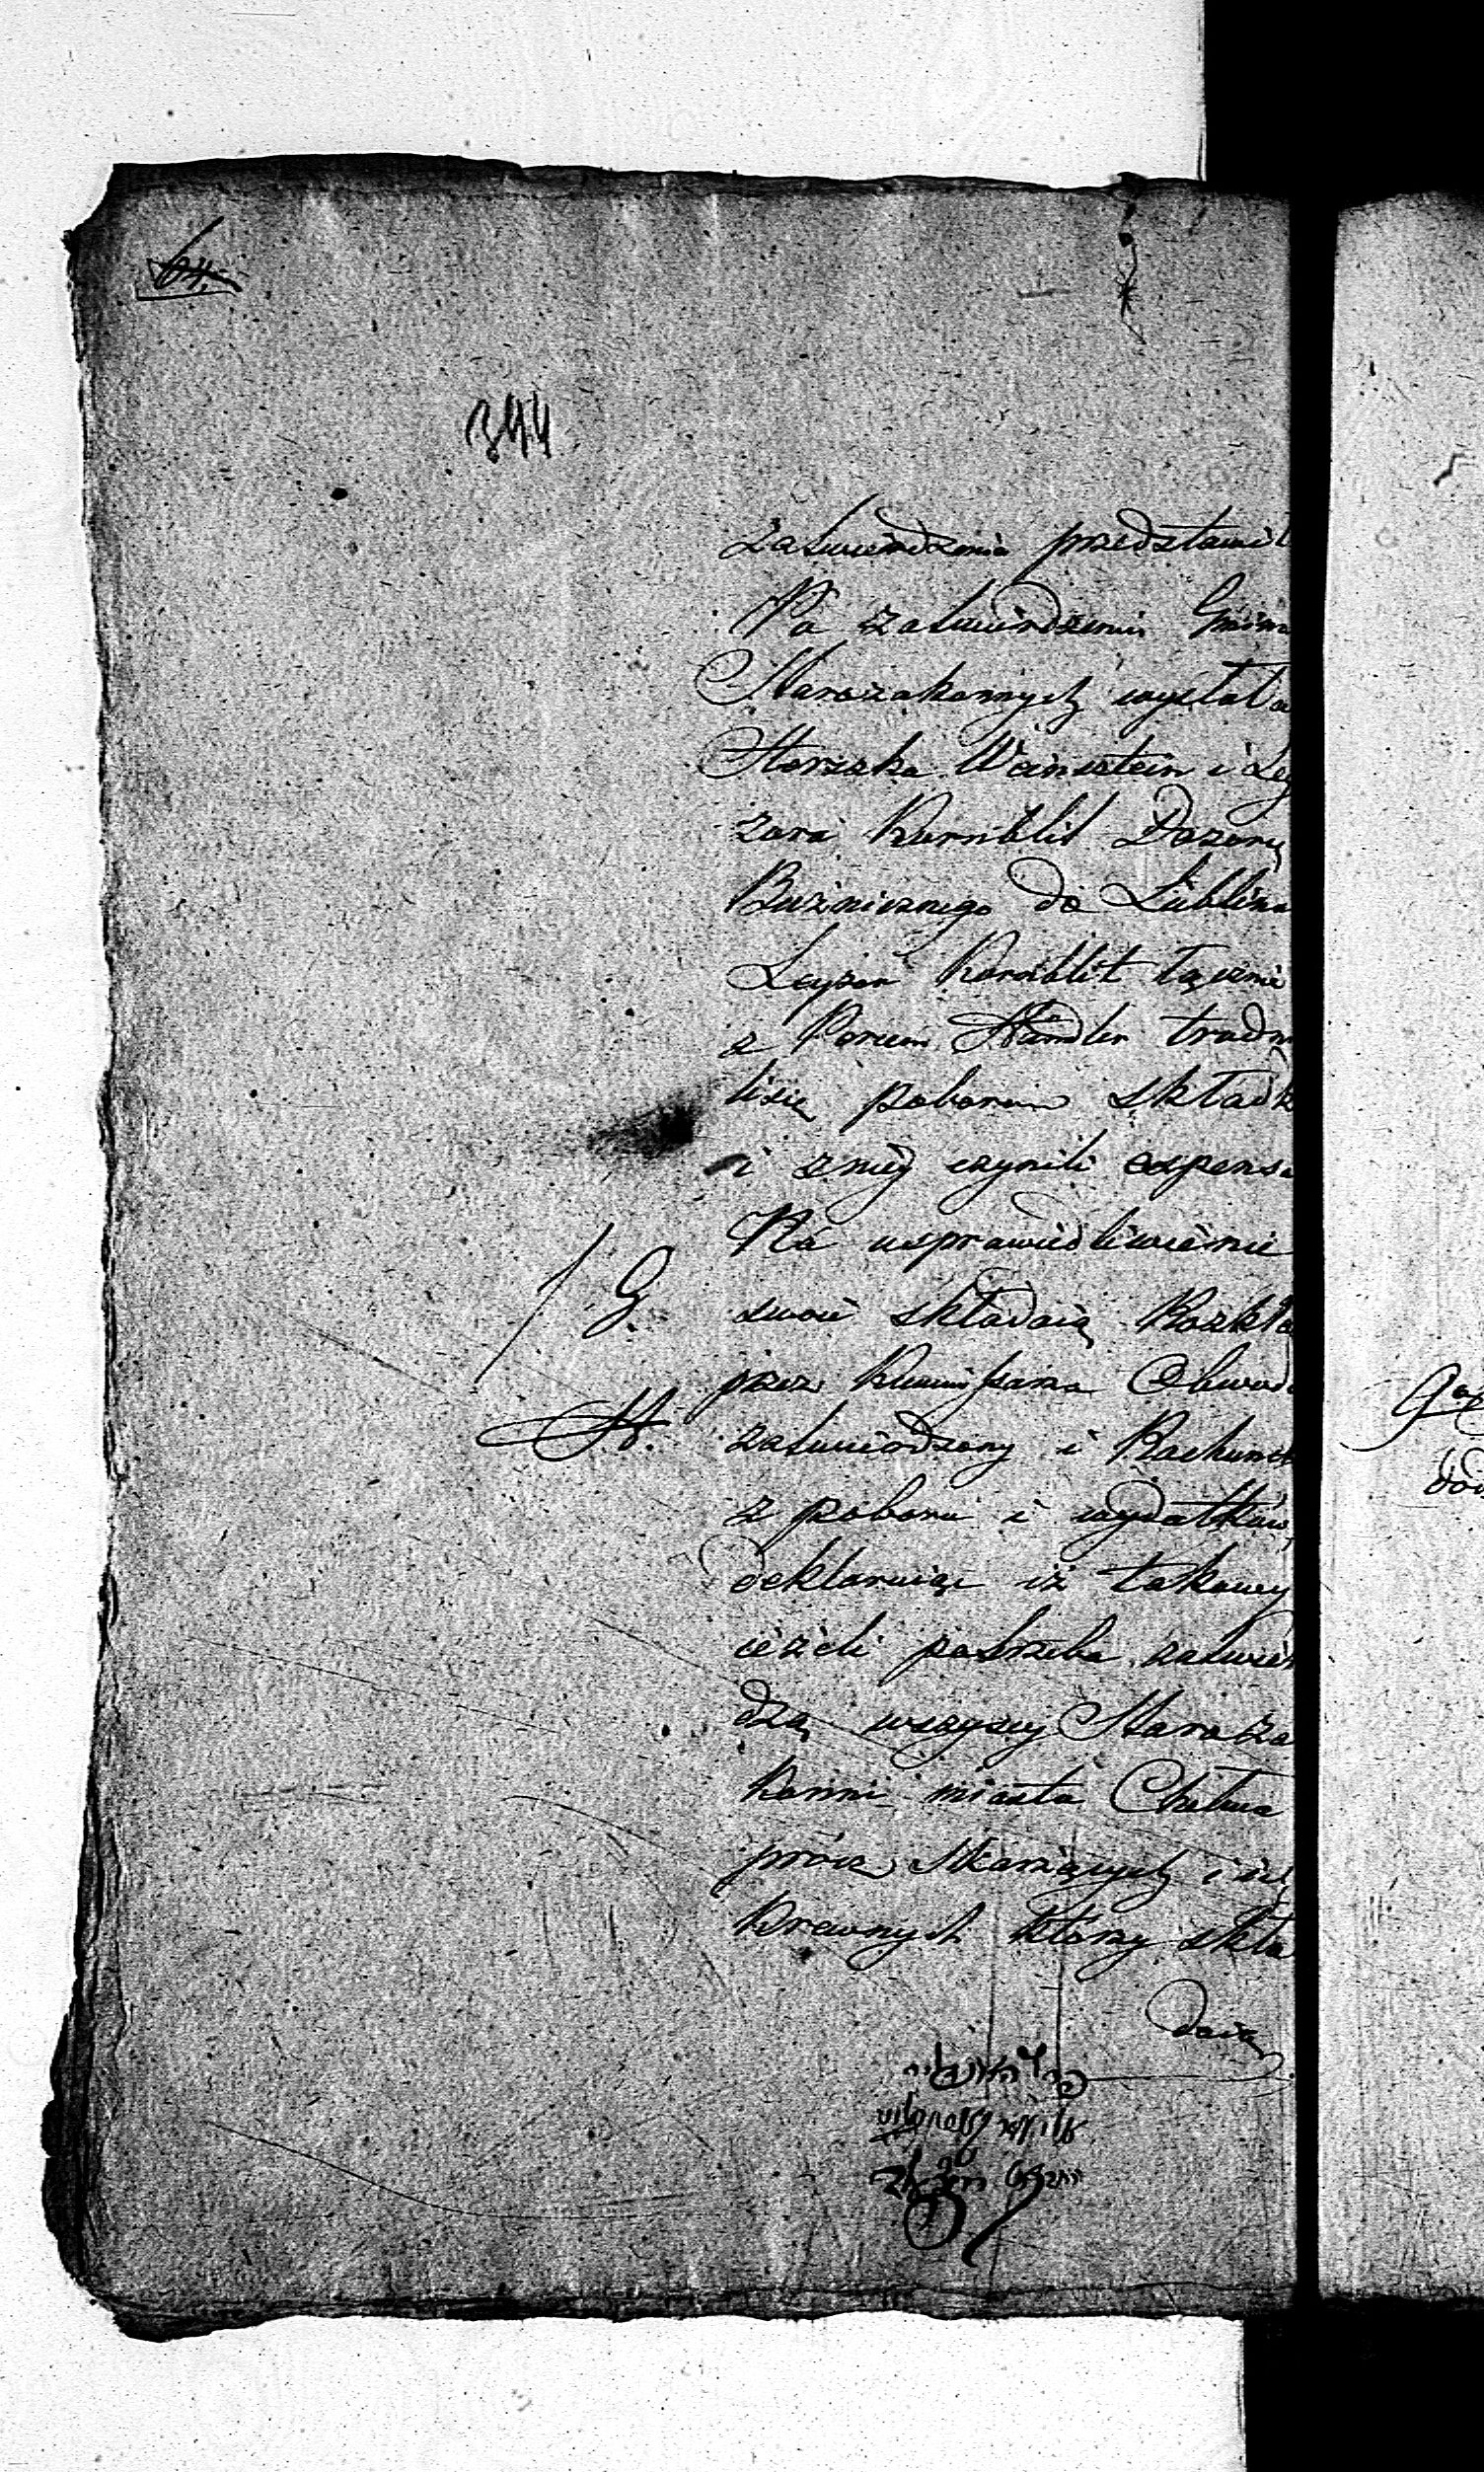 64.
344
zatwierdzenia przedstawił
Po zatwierdzeniu Gmina
Starozakonnych wysłała
Herszka Weinstein i Ley
zora Kornblit Dozoru
Bużnicznego do Lublina
Leyzor Kornblit łącznie
z Handler trudni
lisię poborem składk
i z niey czynili expensa
Na usprawiedliwienie
G. swoie składaią Rozkła
przez Kommissarza Obwod
H. zatwierdzony i Rachunek
z poboru i wydatków,
deklaruiąc iż takowy
ieżeli potrzeba zatwier
dzą wszyscy Staroza
konni miasta Chełma
prócz Skarżących i ich
Krewnych którzy skła
daią